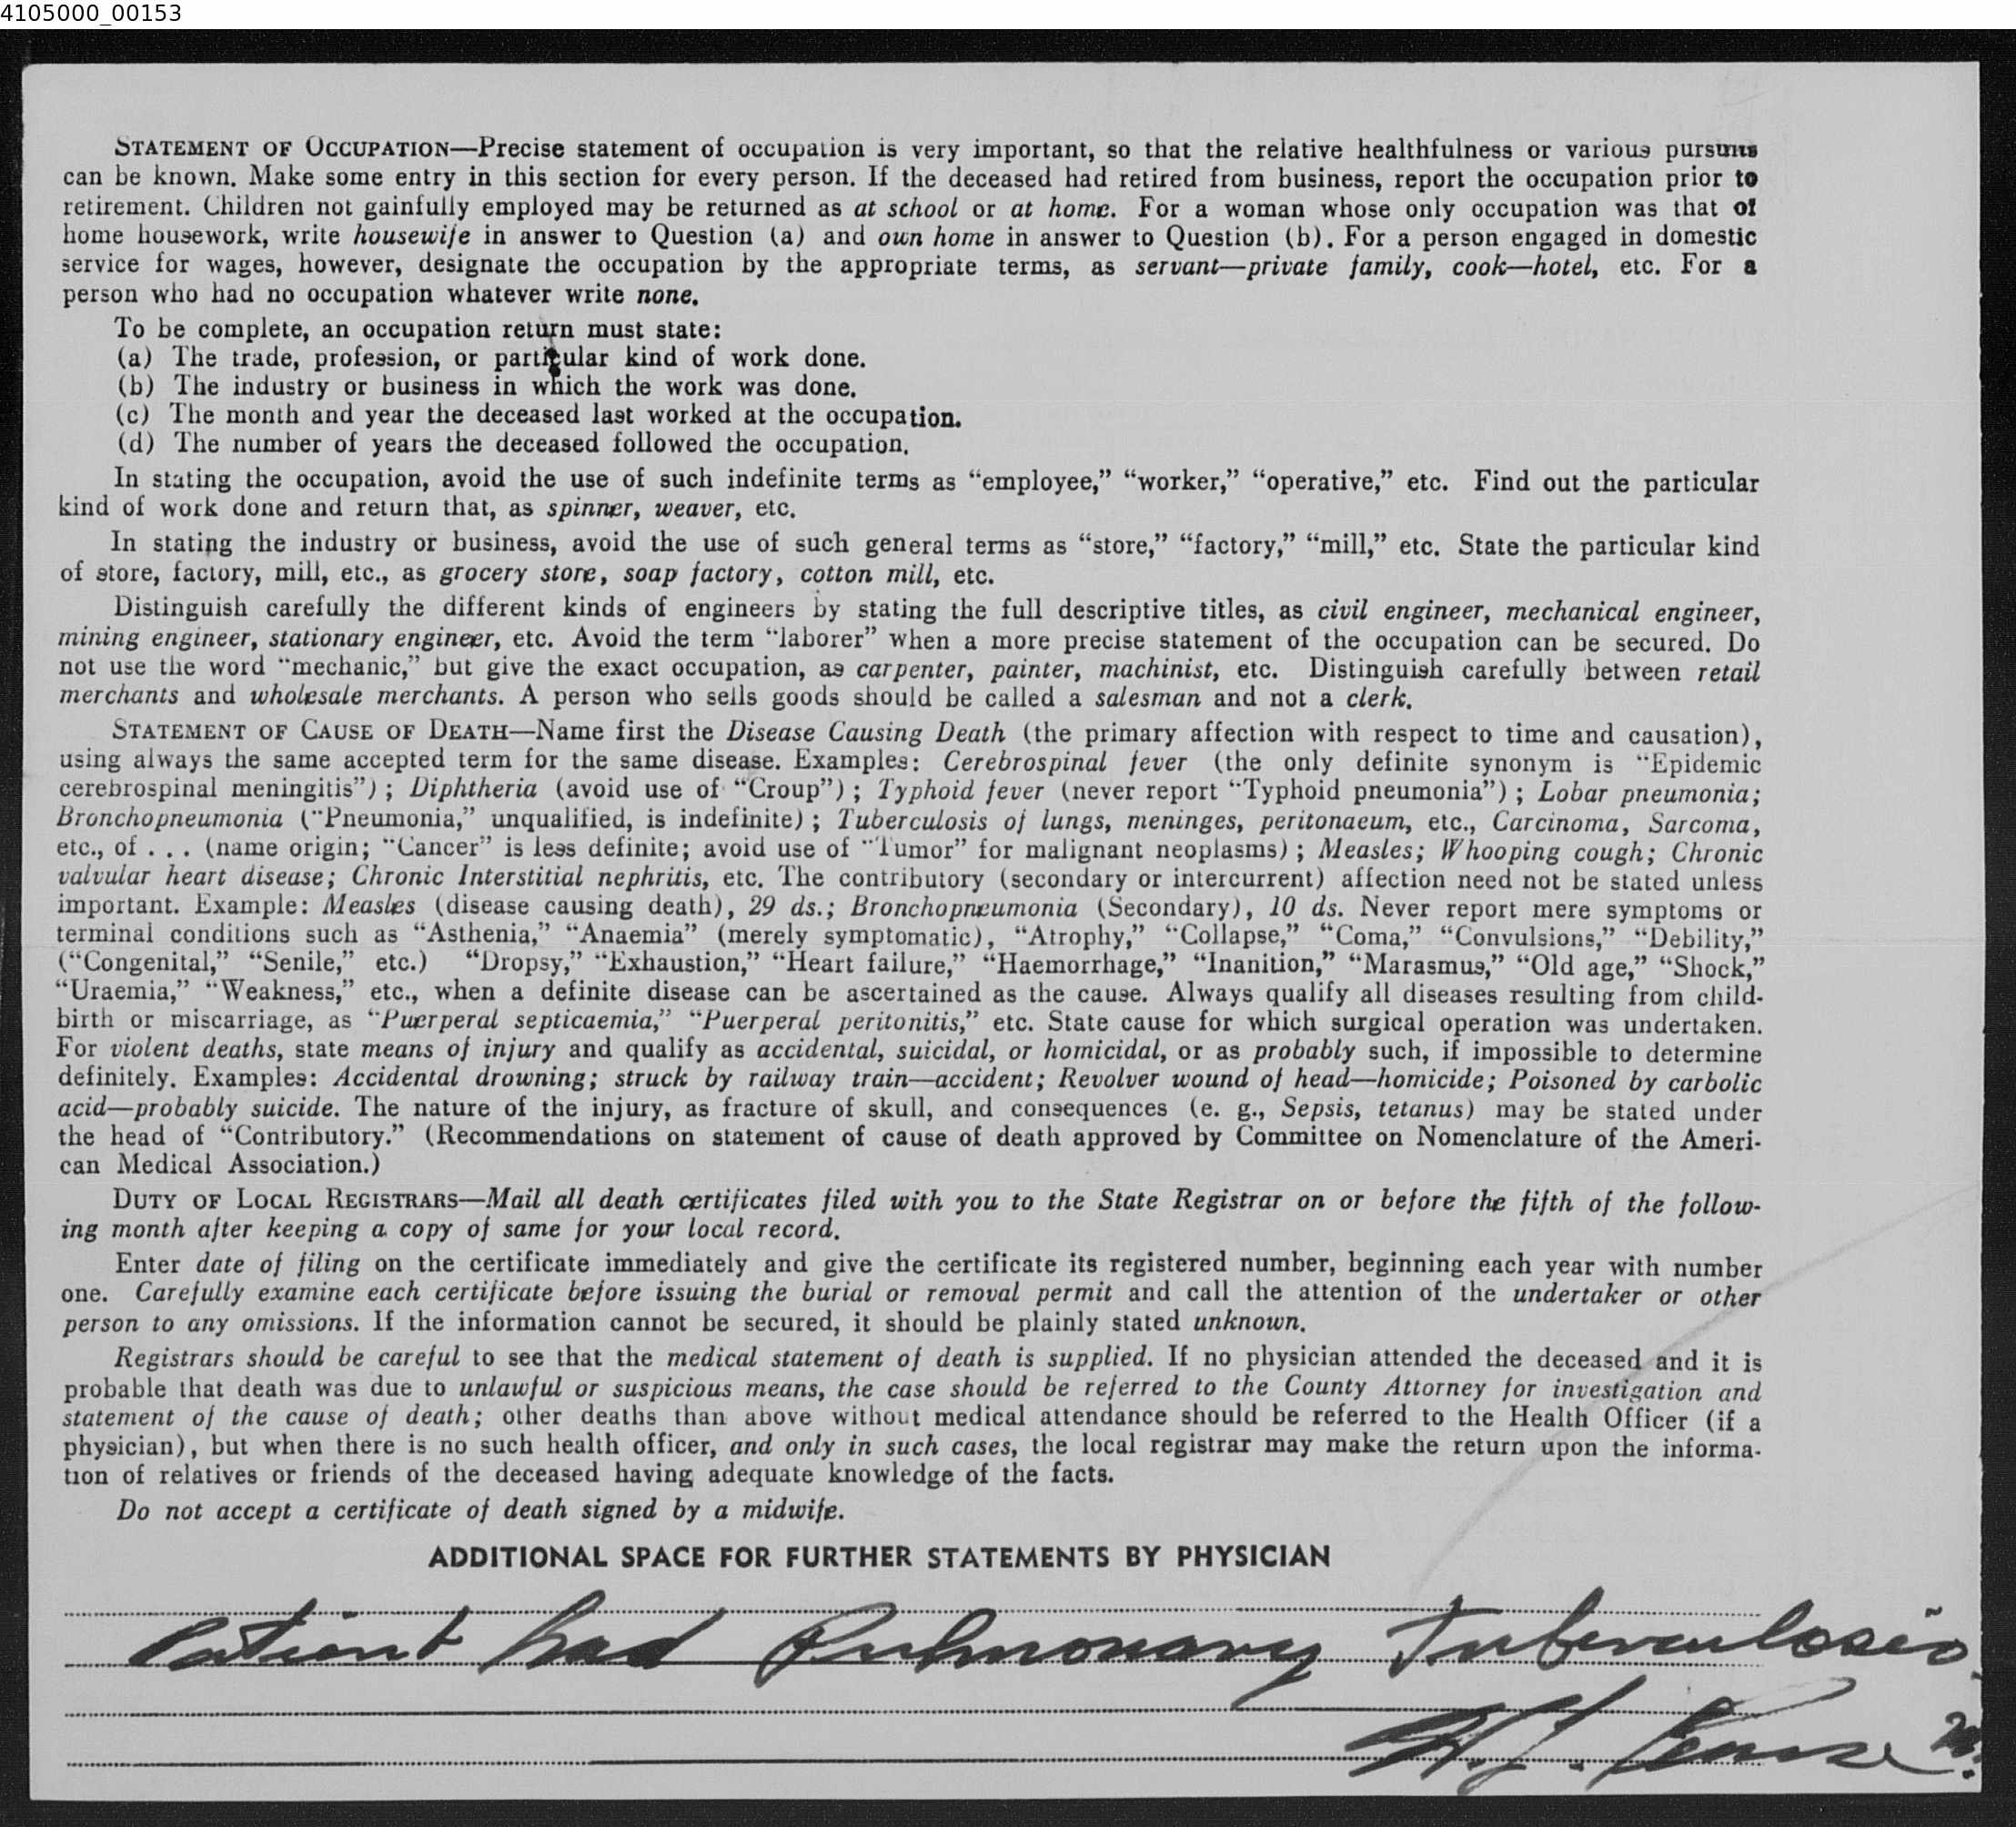 4105000_00153
STATEMENT OF OCCUPATION—Precise statement of occupation is very important, so that the relative healthfulness or various pursuits
can be known. Make some entry in this section for every person. If the deceased had retired from business, report the occupation prior to
retirement. Children not gainfully employed may be returned as at school or at home. For a woman whose only occupation was that of
home housework, write housewife in answer to Question (a) and own home in answer to Question (b). For a person engaged in domestic
service for wages, however, designate the occupation by the appropriate terms, as servant—private family, cook—hotel, etc. For a
person who had no occupation whatever write none.
To be complete, an occupation return must state:
(a) The trade, profession, or particular kind of work done.
(b) The industry or business in which the work was done.
(c) The month and year the deceased last worked at the occupation.
(d) The number of years the deceased followed the occupation.
In stating the occupation, avoid the use of such indefinite terms as “employee,” “worker,” “operative,” etc. Find out the particular
kind of work done and return that, as spinner, weaver, etc.
In stating the industry or business, avoid the use of such general terms as “store,” “factory,” “mill,” etc. State the particular kind
of store, factory, mill, etc., as grocery store, soap factory, cotton mill, etc.
Distinguish carefully the different kinds of engineers by stating the full descriptive titles, as civil engineer, mechanical engineer,
mining engineer, stationary engineer, etc. Avoid the term “laborer” when a more precise statement of the occupation can be secured. Do
not use the word “mechanic,” but give the exact occupation, as carpenter, painter, machinist, etc. Distinguish carefully between retail
merchants and wholesale merchants. A person who sells goods should be called a salesman and not a clerk.
STATEMENT OF CAUSE OF DEATH—Name first the Disease Causing Death (the primary affection with respect to time and causation),
using always the same accepted term for the same disease. Examples: Cerebrospinal fever (the only definite synonym is “Epidemic
cerebrospinal meningitis”); Diphtheria (avoid use of “Croup”); Typhoid fever (never report “Typhoid pneumonia”); Lobar pneumonia;
Bronchopneumonia (“Pneumonia,” unqualified, is indefinite); Tuberculosis of lungs, meninges, peritonaeum, etc., Carcinoma, Sarcoma,
etc., of . . . (name origin; “Cancer” is less definite; avoid use of “Tumor” for malignant neoplasms); Measles; Whooping cough; Chronic
valvular heart disease; Chronic Interstitial nephritis, etc. The contributory (secondary or intercurrent) affection need not be stated unless
important. Example: Measles (disease causing death), 29 ds.; Bronchopneumonia (Secondary), 10 ds. Never report mere symptoms or
terminal conditions such as “Asthenia,” “Anaemia” (merely symptomatic), “Atrophy,” “Collapse,” “Coma,” “Convulsions,” “Debility,”
(“Congenital,” “Senile,” etc.) “Dropsy,” “Exhaustion,” “Heart failure,” “Haemorrhage,” “Inanition,” “Marasmus,” “Old age,” “Shock,”
“Uraemia,” “Weakness,” etc., when a definite disease can be ascertained as the cause. Always qualify all diseases resulting from child-
birth or miscarriage, as “Puerperal septicaemia,” “Puerperal peritonitis,” etc. State cause for which surgical operation was undertaken.
For violent deaths, state means of injury and qualify as accidental, suicidal, or homicidal, or as probably such, if impossible to determine
definitely. Examples: Accidental drowning; struck by railway train—accident; Revolver wound of head—homicide; Poisoned by carbolic
acid—probably suicide. The nature of the injury, as fracture of skull, and consequences (e. g., Sepsis, tetanus) may be stated under
the head of “Contributory.” (Recommendations on statement of cause of death approved by Committee on Nomenclature of the Ameri-
can Medical Association.)
DUTY OF LOCAL REGISTRARS—Mail all death certificates filed with you to the State Registrar on or before the fifth of the follow-
ing month after keeping a copy of same for your local record.
Enter date of filing on the certificate immediately and give the certificate its registered number, beginning each year with number
one. Carefully examine each certificate before issuing the burial or removal permit and call the attention of the undertaker or other
person to any omissions. If the information cannot be secured, it should be plainly stated unknown.
Registrars should be careful to see that the medical statement of death is supplied. If no physician attended the deceased and it is
probable that death was due to unlawful or suspicious means, the case should be referred to the County Attorney for investigation and
statement of the cause of death; other deaths than above without medical attendance should be referred to the Health Officer (if a
physician), but when there is no such health officer, and only in such cases, the local registrar may make the return upon the informa-
tion of relatives or friends of the deceased having adequate knowledge of the facts.
Do not accept a certificate of death signed by a midwife.
ADDITIONAL SPACE FOR FURTHER STATEMENTS BY PHYSICIAN
Patient had Pulmonary Tuberculosis.